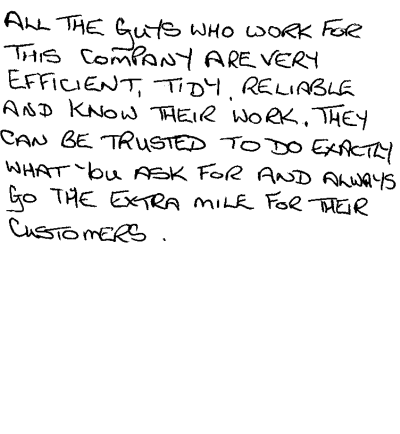 ALL THE GUYS WHO WORK FOR
THIS COMPANY ARE VERY
EFFICIENT, TIDY, RELIABLE
AND KNOW THEIR WORK. THEY
CAN BE TRUSTED TO DO EXACTLY
WHAT YOU ASK FOR AND ALWAYS
GO THE EXTRA MILE FOR THEIR
CUSTOMERS.